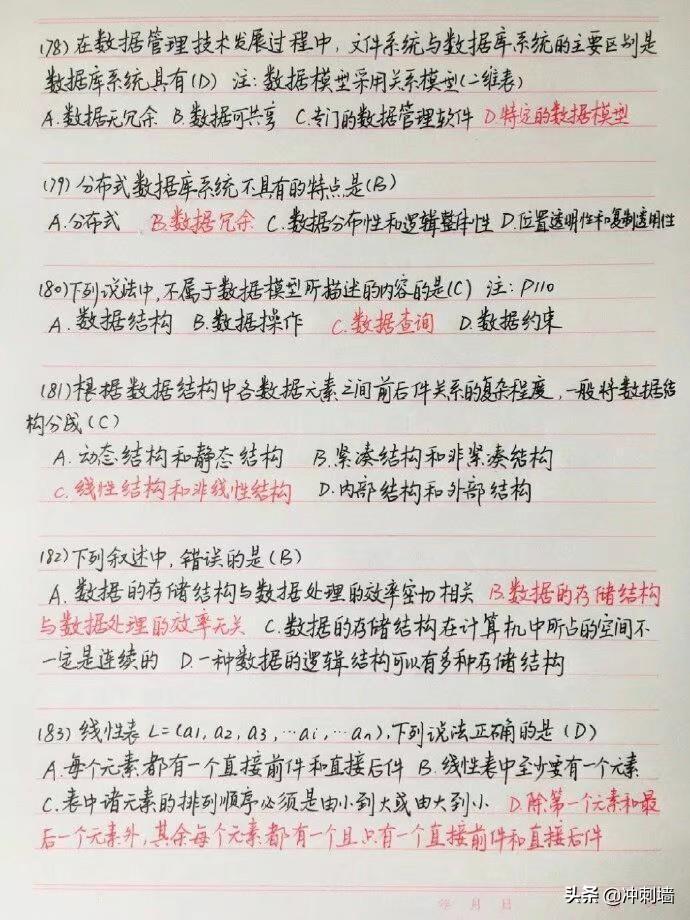 (78) 在数据管理技术发展过程中，文件系统与数据库系统的主要区别是
数据库系统具有(D) 注：数据模型采用关系模型(二维表)
A.数据无冗余 B.数据可共享 C.专门的数据管理软件 D.特定的数据模型
(79) 分布式数据库系统不具有的特点是(B)
A.分布式 B.数据冗余 C.数据分布性和逻辑整体性 D.位置透明性和复制透明性
(80)下列说法中，不属于数据模型所描述的内容的是(C) 注：P110
A.数据结构 B.数据操作 C.数据查询 D.数据约束
(81)根据数据结构中各数据元素之间前后件关系的复杂程度，一般将数据结
构分成(C)
A.动态结构和静态结构 B.紧凑结构和非紧凑结构
C.线性结构和非线性结构 D.内部结构和外部结构
(82)下列叙述中，错误的是(B)
A.数据的存储结构与数据处理的效率密切相关 B.数据的存储结构
与数据处理的效率无关 C.数据的存储结构在计算机中所占的空间不
一定是连续的 D.一种数据的逻辑结构可以有多种存储结构
(83) 线性表 L=(a1, a2, a3, …ai, …an),下列说法正确的是(D)
A.每个元素都有一个直接前件和直接后件 B.线性表中至少要有一个元素
C.表中诸元素的排列顺序必须是由小到大或由大到小 D.除第一个元素和最
后一个元素外，其余每个元素都有一个且只有一个直接前件和直接后件
年 月 日
头条 @冲刺墙